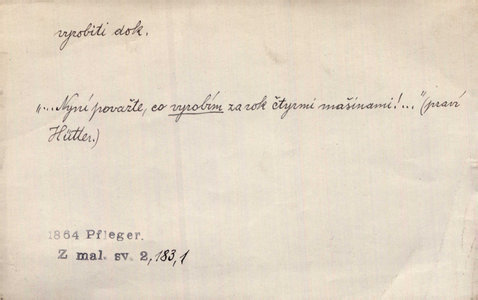 vyrobiti dok.
„...Nyní považte, co vyrobím za rok čtyrmi mašinami!..." (praví
Hüttler.)
1864 Pfleger.
Z mal. sv. 2, 183,1